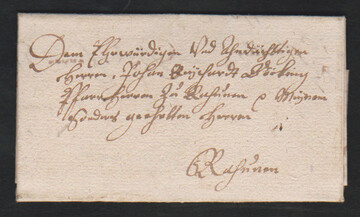 Dem Ehrwürdigen Und Andächtigen
Herren, Johan
Pfarrherren Zu Rahunen p Meinem
geehrten Herren
Rahunen